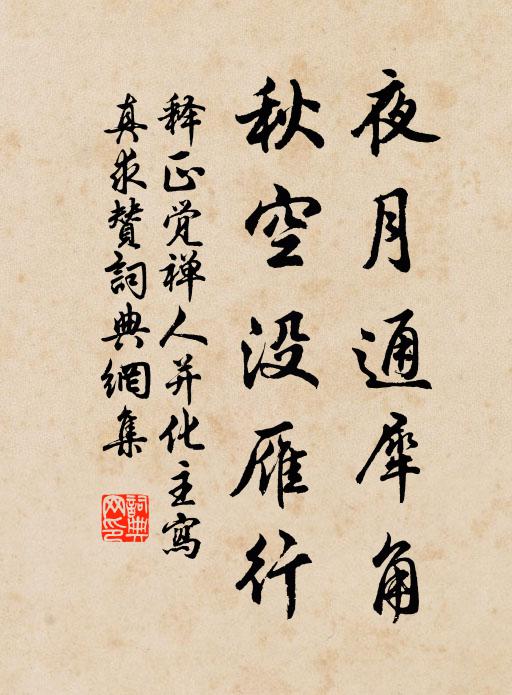 夜月通犀角
秋空没雁行
释正觉禅人并化主寫
真求赞詞典網集
詞典網印